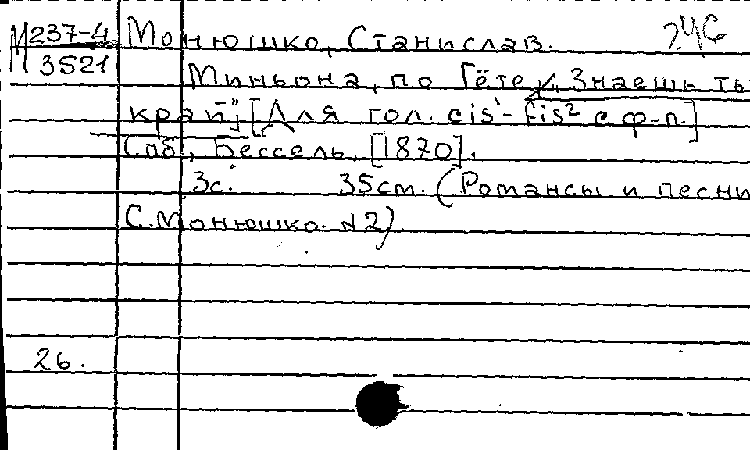 М 237-4
3521
Монюшко, Станислав.
246
Миньона, по Гёте ["Знаешь ты
край"] [Для гол. cis¹-fis² с ф-п.]
Спб, Бессель, [1870].
3с. 35см. (Романсы и песни
С. Монюшко. №2)
26.